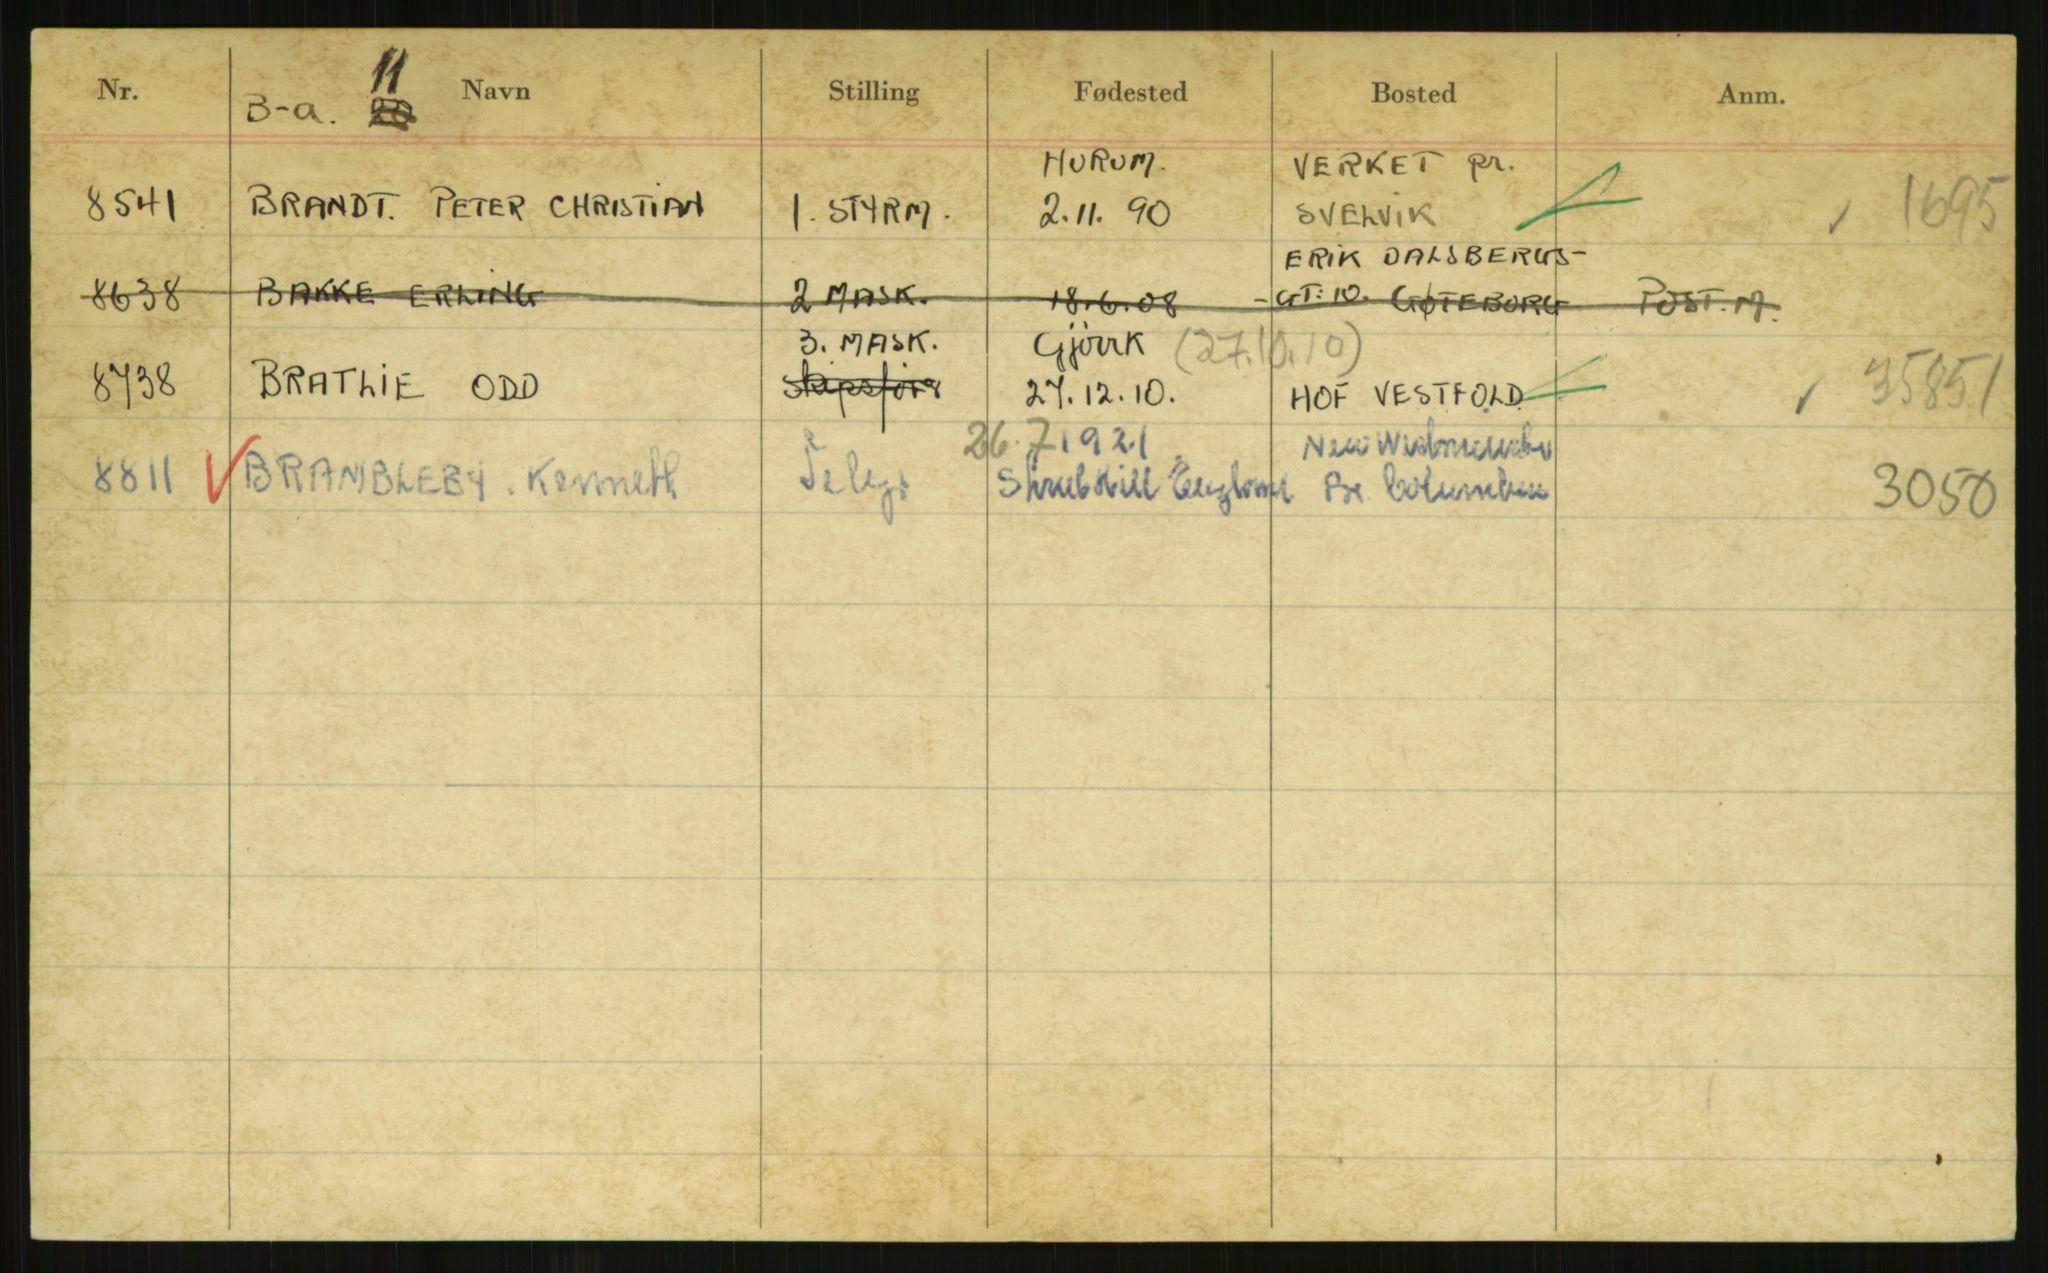 Nr. Navn Stilling Fødested Bosted Anm.
B-a. 11 20
HURUM. VERKET pr.
8541 BRANDT. PETER CHRISTIAN 1. STYRM. 2.11. 90 SVELVIK 1695
ERIK DALSBERGS-
8638 BAKKE ERLING 2 MASK. 18.6.08 - GT. 10. GØTEBORG POST. M.
3. MASK. Gjövik (27.10.10)
8738 BRATLIE ODD skipsför 27.12.10. HOF VESTFOLD 35851
26.7 1921 New
8811 BRAMBLEBY. Kenneth Telegr Shrub Hill England Br. Columbia 3050